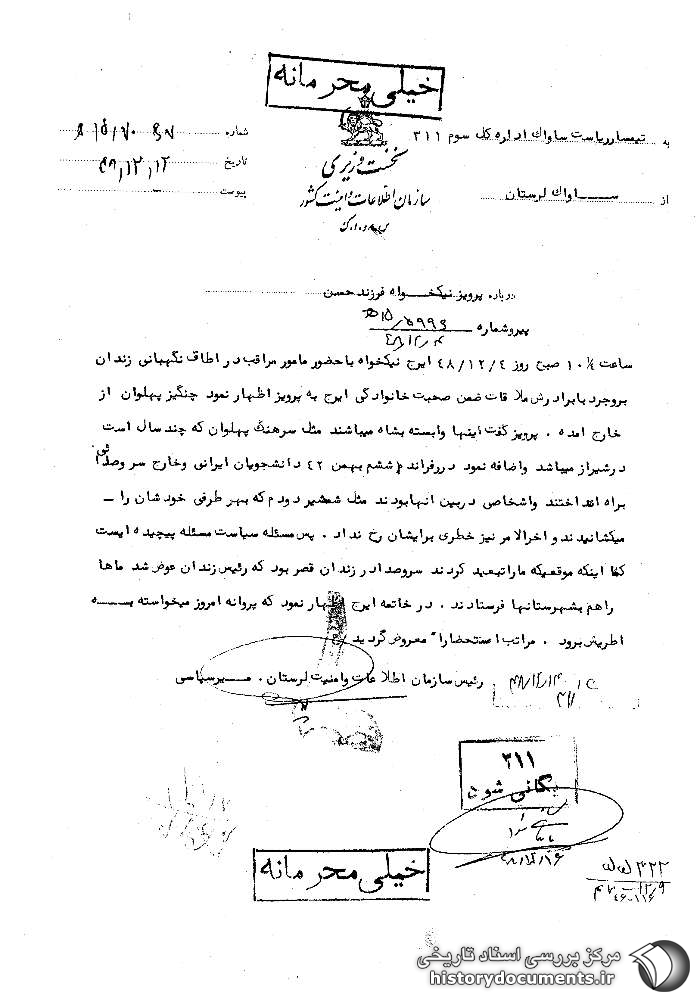 خیلی محرمانه
به تیمسار ریاست ساواك اداره کل سوم ۳۱۱
از ســـاواك لرستان
نخست وزیری
سازمان اطلاعات و امنیت کشور
س.ا.و.ا.ک
شماره
تاریخ ۴۸,۱۲,۱۲
پیوست
درباره پرویز نیکخـــواه فرزند حسن
پیرو شماره
ساعت ۱۰ صبح روز ۴۸/۱۲/۴ ایرج نیکخواه با حضور مامور مراقب در اطاق نگهبانی زندان
بروجرد با برادرش ملاقات ضمن صحبت خانوادگی ایرج به پرویز اظهار نمود چنگیز پهلوان از
خارج امده . پرویز گفت اینها وابسته بشاه میباشند مثل سرهنگ پهلوان که چند سال است
در شیراز میباشد و اضافه نمود در رفراند م ششم بهمن ۴۲ دانشجویان ایرانی و خارج سر و صدائی
براه انداختند و اشخاصی در بین انها بودند مثل شمشیر دو دم که بهر طرفی خودشان را ــ
میکشانیدند و اخرالامر نیز خطری برایشان رخ نداد . پس مسئله سیاست مسئله پیچیده ایست
کما اینکه موقعیکه ما را تبعید کردند سر و صدا در زندان قصر بود که رئیس زندان عوض شد ماها
را هم بشهرستانها فرستادند . در خاتمه ایرج اظهار نمود که پروانه امروز میخواسته بـــه
اطریش برود . مراتب استحضارا" معروض گردید
رئیس سازمان اطلاعات و امنیت لرستان .
۳۱۱
بگانی شود
۴۸/۱۲/۱۶
۳۲۲
خیلی محرمانه
مرکز بررسی اسناد تاریخی
historydocuments.ir